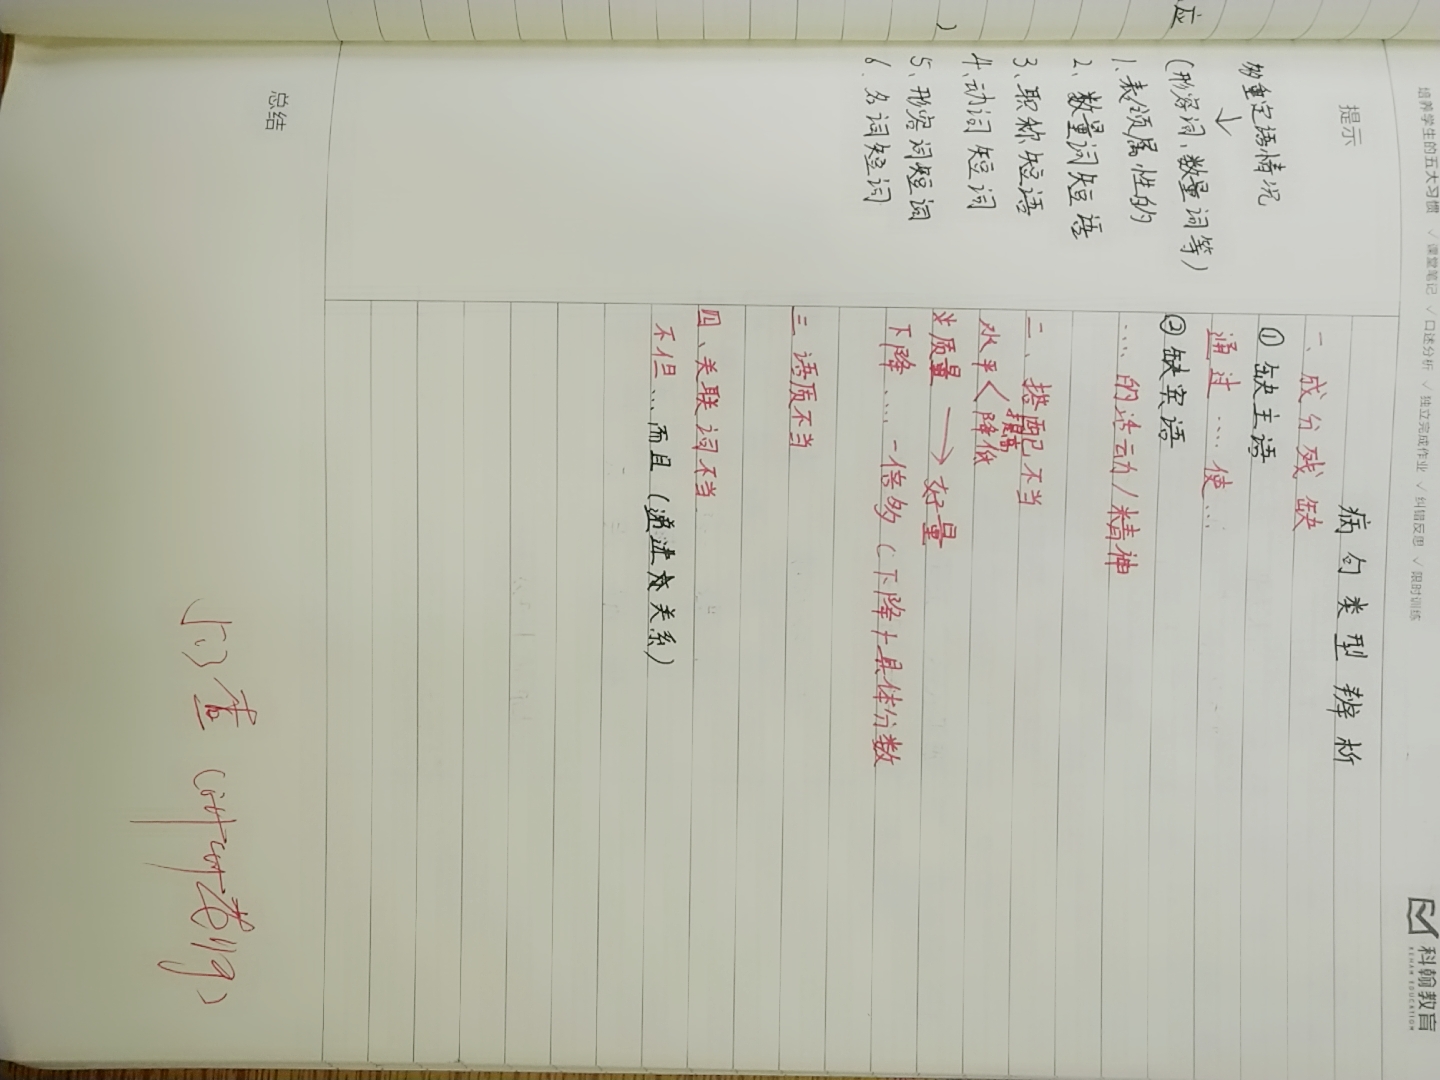 培养学生的五大习惯 √ 课堂笔记 √ 口述分析 √ 独立完成作业 √ 纠错反思 √ 限时训练
科翰教育
KEHAN EDUCATION
应
)
提示
多重定语情况
↓
(形容词、数量词等)
1、表领属性的
2、数量词短语
3、职称短语
4、动词短词
5、形容词短词
6、名词短词
病句类型辨析
一、成分残缺
① 缺主语
通过……使…
② 缺宾语
……的活动/精神
二、搭配不当
提高
水平<降低
质量 → 好量
下降……一倍多(下降+具体分数
三 语质不当
四、关联词不当
不但…,而且(递进 关系)
总结